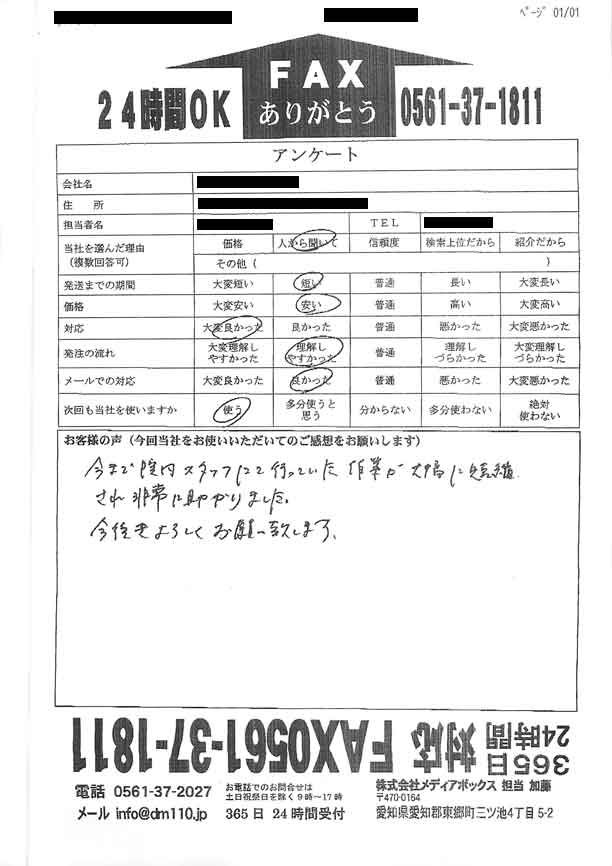 ページ 01/01
24時間OK
FAX
ありがとう
0561-37-1811
アンケート
会社名
住 所
担当者名 TEL
当社を選んだ理由
(複数回答可)
価格 人から聞いて 信頼度 検索上位だから 紹介だから
その他 ( )
発送までの期間 大変短い 短い 普通 長い 大変長い
価格 大変安い 安い 普通 高い 大変高い
対応 大変良かった 良かった 普通 悪かった 大変悪かった
発注の流れ 大変理解しやすかった 理解しやすかった 普通 理解しづらかった 大変理解しづらかった
メールでの対応 大変良かった 良かった 普通 悪かった 大変悪かった
次回も当社を使いますか 使う 多分使うと思う 分からない 多分使わない 絶対使わない
お客様の声(今回当社をお使いいただいてのご感想をお願いします)
今まで院内スタッフにて行っていた作業が大幅に短縮
され非常に助かりました。
今後もよろしくお願い致します。
365日
24時間 対応 FAX0561-37-1811
電話 0561-37-2027
メール info@dm110.jp
お電話でのお問合せは
土日祝祭日を除く9時~17時
365日 24時間受付
株式会社メディアボックス 担当 加藤
〒470-0164
愛知県愛知郡東郷町三ツ池4丁目5-2